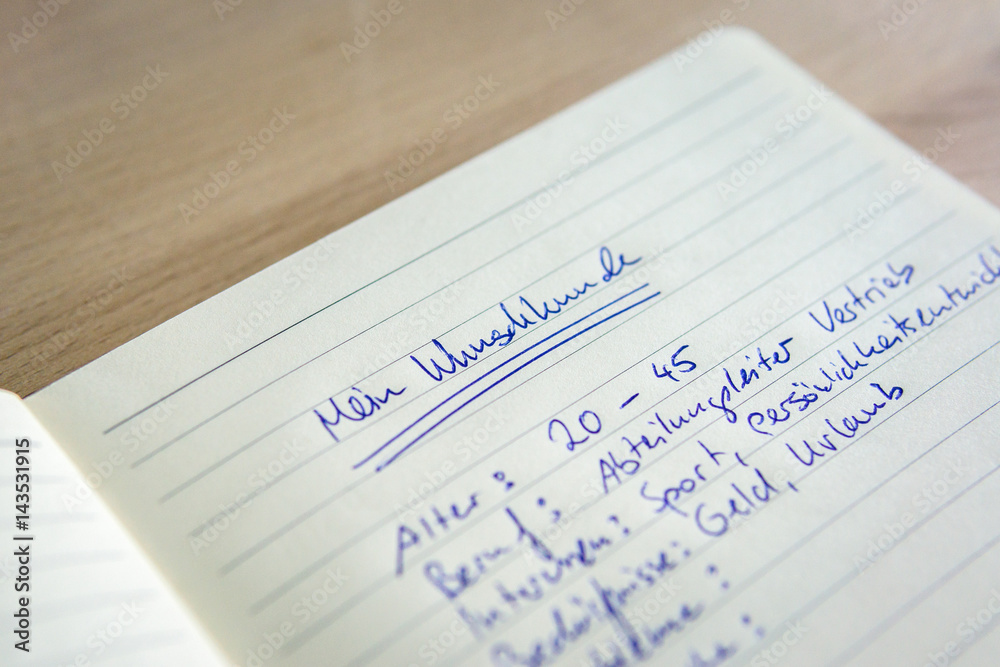 Mein Wunschkunde
Alter: 20 - 45
Beruf: Abteilungsleiter Vertrieb
Sport, Persönlichkeitsentwickl
Bedürfnisse: Geld, Urlaub
Adobe Stock | #143531915